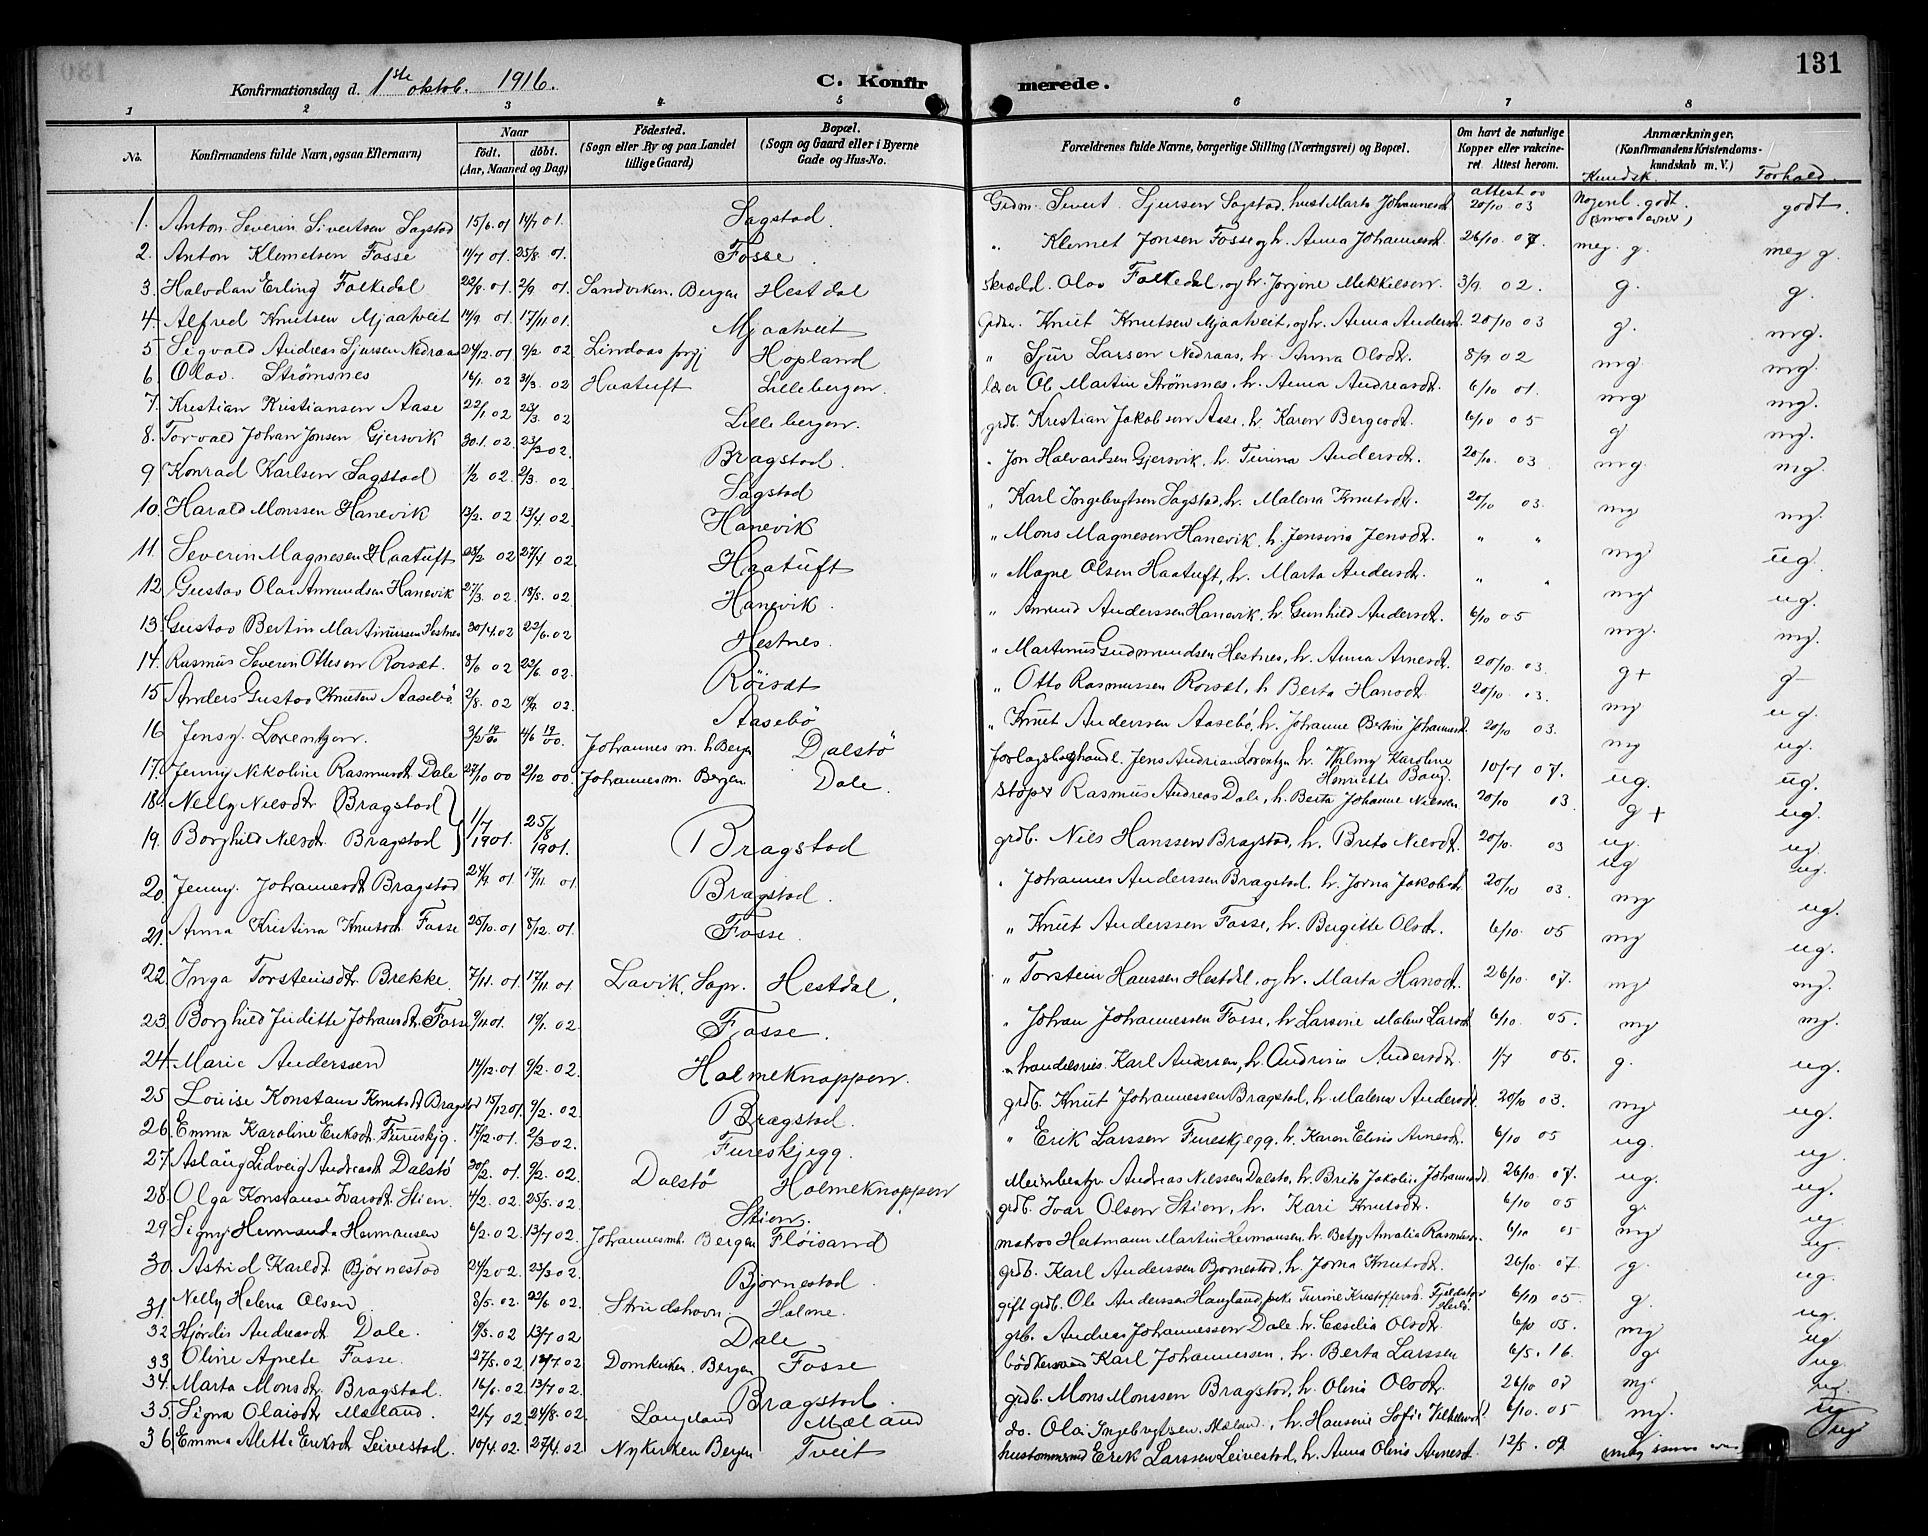 131
Konfirmationsdag d. 1ste oktob. 1916. C. Konfirmerede.
1 2 3 4 5 6 7 8
No. Konfirmandens fulde Navn, ogsaa Efternavn) Naar födt. döbt. (Aar, Maaned og Dag) Födested. (Sogn eller By og paa Landet tillige Gaard) Bopæl. (Sogn og Gaard eller i Byerne Gade og Hus-No. Forældrenes fulde Navne, borgerlige Stilling (Næringsvei) og Bopæl. Om havt de naturlige Kopper eller vakcineret. Attest herom. Anmærkninger. (Konfirmandens Kristendomskundskab m. V.) Kundsk. Forhold.
1. Anton Severin Sivertsen Sagstad 15/6 01 14/7 01. Sagstad Grdm. Sivert Sjursen Sagstad, hust. Marta Johannesdt attest 20/10 03 Nogenl. godt. (smaa evner) godt.
2. Anton Klemetsen Fosse 11/7 01 25/8 01. Fosse. " Klemet Jonsen Fosse og h. Anna Johannesdt. 26/10 07. meg. g. meg g.
3. Halvdan Erling Folkedal 22/8 01. 2/9 01. Sandviken, Bergen Hestdal skrædd. Olav Folkedal, og h. Jorjine Mekkelsen. 3/9 02. g. g.
4. Alfred Knutsen Mjaatveit 14/9 01. 17/11 01. Mjaatveit Grdbr. Knut Knutsen Mjaatveit, og h. Anna Andersdt. 20/10 03 g. mg.
5 Sigvald Andreas Sjursen Nedraas 24/12 01 9/2 02 Lindaas prgj Hopland " Sjur Larsen Nedraas, h. Anna Olsdt. 8/9 02 mg mg.
6. Olav Strømsnes 16/1. 02 3/3. 02 Haatuft Lillebergen. lærer Ol. Martin Strømsnes, h. Anna Andreasdt. 6/10 01. mg mg.
7. Kristian Kristiansen Aase 22/1 02 23/3. 02 Lille bergen. grdb. Kristian Jakobsen Aase, h. Karen Bergesdt. 6/10 05 g mg.
8. Torvald Johan Jonsen Gjersvik 30.1.02 23/3 02. Bragstad. " Jon Halvardsen Gjersvik, h. Turina Andersdt. 20/10. 03 mg. mg.
9 Konrad Karlsen Sagstad 1/2 02 2/3. 02 Sagstad " Karl Ingebrigtsen Sagstad, h. Malena Knutsdt. 20/10 03. mg mg.
10. Harald Monssen Hanevik 13/2. 02 13/4 02. Hanevik " Mons Magnesen Hanevik, h. Jensina Jensdt. " " mg ug.
11. Severin Magnesen Haatuft 23/2 02 27/4 02 Haatuft " Magne Olsen Haatuft, h. Marta Andersdt. " " mg ug.
12 Gustav Olai Amundsen Hanevik 27/3. 02. 18/5. 02 Hanevik. " Amund Anderssen Hanevik, h. Gunhild Andersdt. 6/10 05 mg. mg.
13. Gustav Bertin Martinussen Hestnes 30/4.02 22/6. 02 Hestnes " Martinus Gudmundsen Hestnes, h. Anna Arnesdt. 20/10. 03. g+ g
14. Rasmus Severin Ottesen Roisæt. 8/6 02 22/6. 02. Röisæt " Otto Rasmussen Roisæt, h Berta Hansdt. 20/10. 03. mg ug.
15 Anders Gustav Knutsen Aasebö 2/8. 02 02. Aasebö " Knut Anderssen Aasebö, h. Johanne Bertine Johannesdt. 20/10 03. mg ug.
16 Jens g. Lorentzen. 3/2 19/00 4/6 19/00. Johannes m. h Bergen Dalstö forlagsboghandl. Jens Andrian Lorentzen h. Wilmy Karoline Henriette Baug. 10/7 07. ug. ug.
17. Jenny Nikoline Rasmusdt Dale 27/10 00 2/12 00. Johannesm. Bergen Dale. støper Rasmus Andreas Dale, h. Berta Johanne Nilssen 20/10 03. g + ug.
18. Nelly Nilsdt Bragstad } 1/7 1901. 25/8 1901. Bragstad grdb. Nils Hanssen Bragstad, h. Brita Nilsdt. 20/10. 03 ug. ug
19. Borghild Nilsdt Bragstad } ug ug.
20. Jenny Johannesdt Bragstad 24/9 01 17/11. 01. Bragstad. " Johannes Anderssen Bragstad, h. Jorna Jakobsdt. 20/10 03. mg ug.
21. Anna Kristina Knutsdt. Fosse 25/10. 01 8/12. 01. Fosse. " Knut Anderssen Fosse, h. Bergitte Olsdt. 6/10. 05 mg ug.
22. Inga Torsteinsdt. Brekke. 7/11. 01. 17/11. 01 Lavik, Sogn. Hestdal. " Torstein Hanssen Hestdal, og h. Marta Hansdt. 26/10. 07. mg mg.
23. Borghild Juditte Johansdt. Fosse 9/11 01. 19/1. 02 Fosse. " Johan Johannessen Fosse, h. Larsine Malene Larsdt 6/10. 05. mg mg.
24. Marie Anderssen 14/12.01. 9/2. 02. Holmeknappen. " handelsreis. Karl Andersen, h. Andrine Andersdt. 1/7 05. g. ug.
25 Louise Konstanse Knutsdt Bragstad 15/12 01. 9/2. 02 Bragstad. grdb. Knut Johannessen Bragstad, h. Malena Andersdt. 20/10 03. mg ug.
26. Emma Karoline Eriksdt. Fureskjg. 17/12.01. 2/3 02. Fureskjegg. " Erik Larssen Fureskjegg, h. Karen Elina Arnesdt. 6/10 05 ug. ug
27. Aslaug Lidveig Andreasdt. Dalstö 30/12. 01. 9/2. 02. Dalstö Holmeknappen Andreas Nilssen Dalstö, h. Brita Jakolin Johannesdt 26/10. 07. ug. ug.
28. Olga Konstanse Ivarsdt. Stien. 4/2. 02. 25/5. 02. Stien. grdb. Ivar Olsen Stien, h. Kari Knutsdt. 6/10 05 g ug
29. Signy Hermunda Hermansen 6/2.02 13/7 02. Johannesmh. Bergen Fløisand matros Heitmann Martin Hermansen, h. Betzy Amalia Rasmussen. 6/10 05 mg ug.
30. Astrid Karldt Björnestad 24/2 02. 23/3 02. Björnestad. grdb. Karl Anderssen Björnestad, h. Jorna Knutsdt. 26/10. 07 g. ug.
31. Nelly Helena Olsen 8/5. 02. 22/6. 02 Strudshavn. Holme. gift grdb. Ole Anderssen Haugland, pike Turine Kristoffersdt. 6/10 05. g. ug.
32 Hjördis Andreasdt Dale. 19/5. 02 13/7 02 Dale grb. Andreas Johannessen Dale, h. Cæsilia Olsdt. 6/10 05. mg ug
33. Oline Agnete Fosse. 27/5. 02 13/7 02 Domkirken, Bergen Fosse bödkersvend Karl Johannessen, h. Berta Larssen 6/5. 16. g ug.
34. Marta Monsdt. Bragstad. 16/6. 02 13/7 02. Bragstad. grdb. Mons Monssen Bragstad, h. Olina Olsdt. 26/10 07 mg. ug.
35. Signa Olaisdt Mæland. 21/7 02 24/8. 02. Langeland Mæland do. Olai Ingebrigtsen Mæland, h. Hansine Sofie Vilhelmsdt. 6/10. 05 mg. ug
36. Emma Alette Eriksdt Leivestad. 10/4. 02. 27/4. 02 Nykirken Bergen Tveit Erik Larssen Leivestad, h. Anna Olina Arnesdt. 12/5. 09. ug